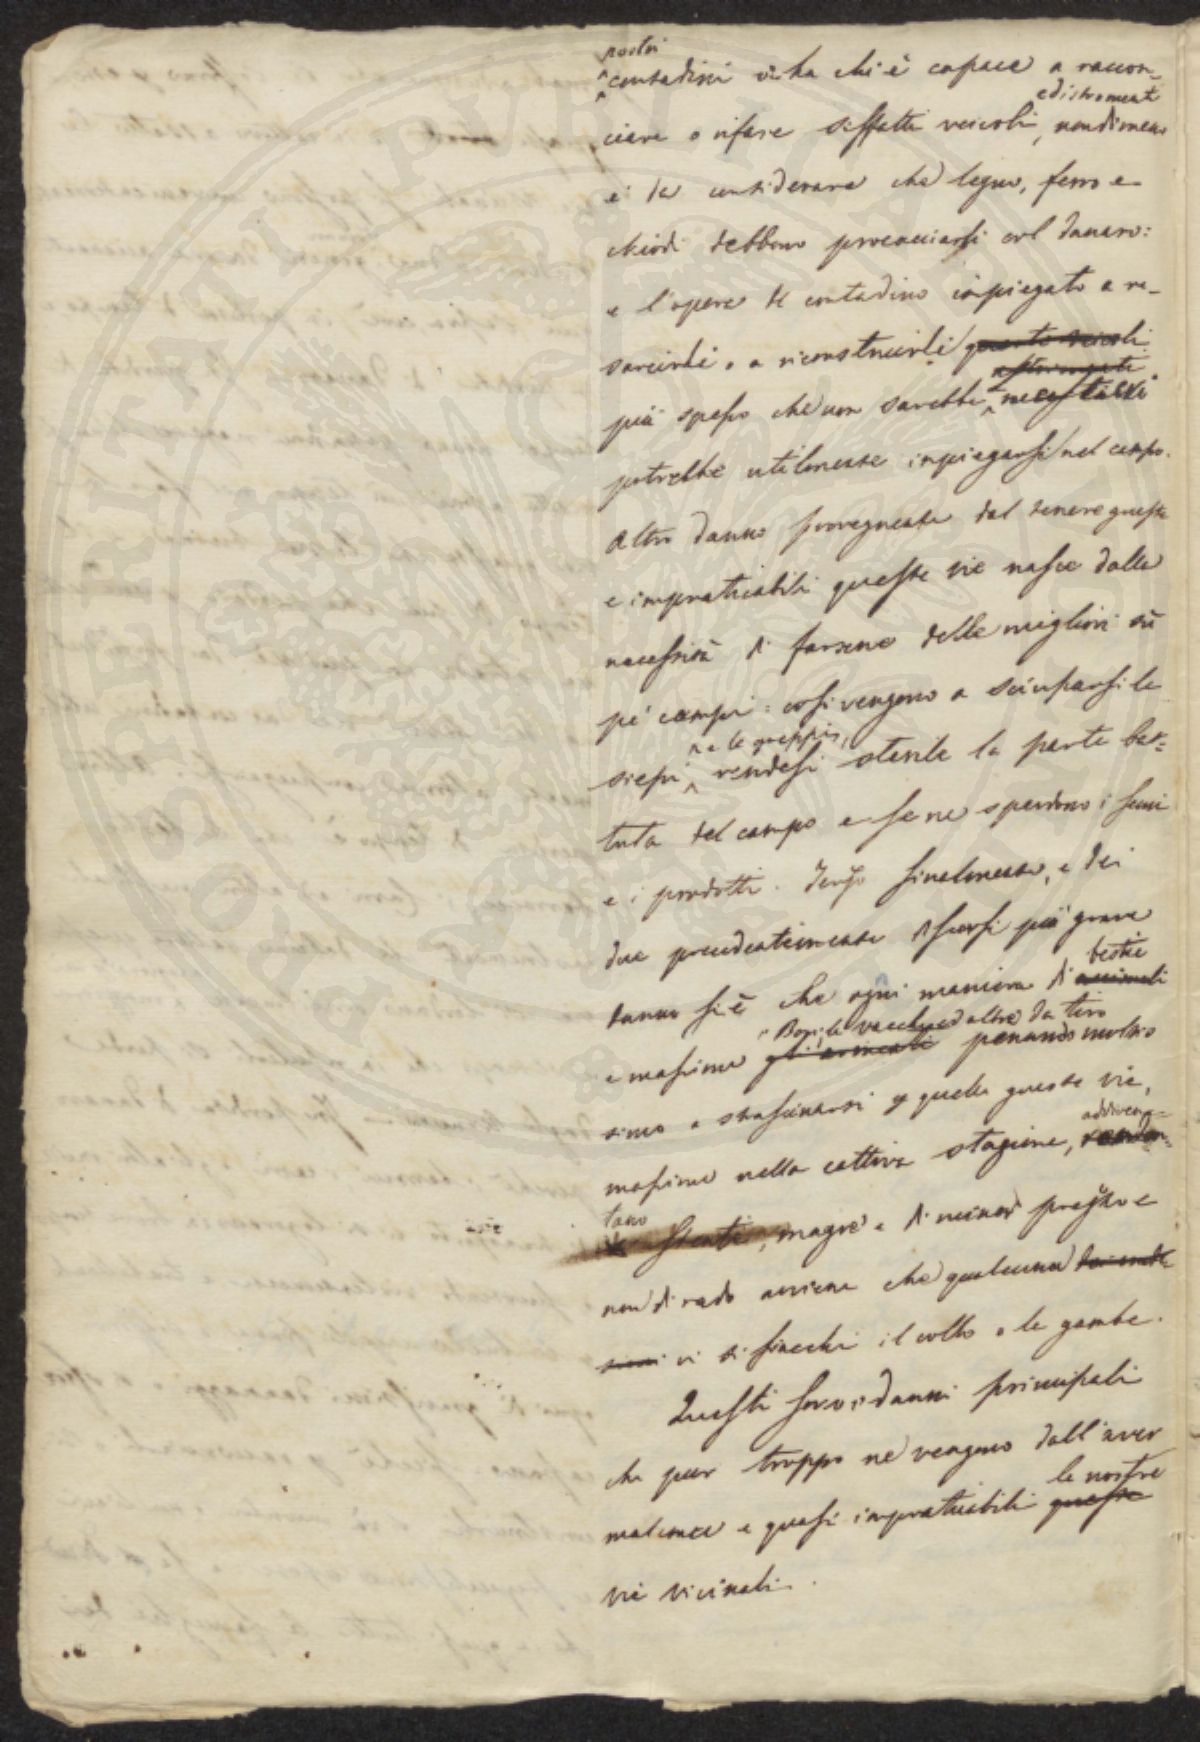 nostri
contadini vi ha chi è capace a raccon-
ed istromenti
ciare o rifare siffatti veicoli, nondimeno
è da considerare che legno, ferro e
chiodi debbono procacciarsi col danaro:
e l'opera del contadino impiegato a re-
sarcirli, o a riconstruirli questi veicoli
più spesso che non sarebbe necessario
potrebbe utilmente impiegarsi nel campo.
Altro danno provegnente dal tenere guaste
e impraticabili queste vie nasce dalla
necessità di farsene delle migliori su
pe' campi: così vengono a sciuparsi le
e le greppie,
siepi, rendesi sterile la parte bat-
tuta del campo e se ne sperdono i semi
e i prodotti. Terzo finalmente, e dei
due precedentemente discorsi più grave
bestie
danno si è che ogni maniera di animali
Bovi, le vacche ed altre da tiro
e massime gli armenti penando moltis
simo a strascinarsi per quelle guaste vie,
addiven-
massime nella cattiva stagione,
tano
stenti, magre e di minor pregio e
non di rado avviene che qualcuna
vi si fiacchi il collo o le gambe.
Questi sono i danni principali
che pur troppo ne vengono dall'aver
le nostre
malconce e quasi impraticabili queste
vie vicinali.
POSTERITATI PVBLICAE